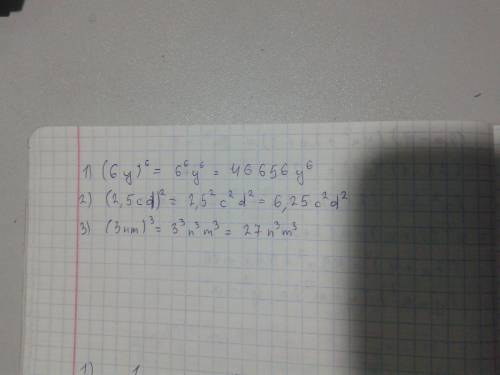 1) (6y)⁶ = 6⁶y⁶ = 46656y⁶
2) (2,5cd)² = 2,5²c²d² = 6,25c²d²
3) (3nm)³ = 3³n³m³ = 27n³m³
1)